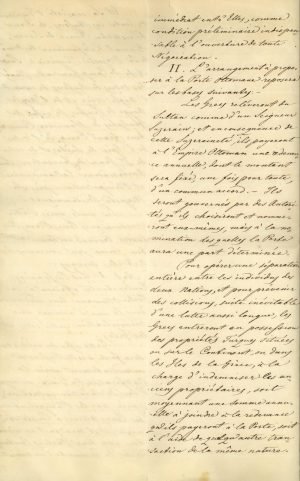 immédiat entr'Elles, comme
condition préliminaire indispen
sable à l'ouverture de toute
Négociation.
II. L'arrangement à propo
ser à la Porte Ottomane reposera
sur les bases suivantes:
Les Grecs relèveront du
Sultan comme d'un Seigneur
Suzerain; et en conséquence de
cette Suzeraineté, ils payeront
à l'Empire Ottoman une redevan
ce annuelle, dont le montant
sera fixé, une fois pour toute
d'un commun accord. — Ils
seront gouvernés par des Autori
tés qu'ils choisiront et nomme
ront eux-mêmes, mais à la no
mination des quelles la Porte
aura une part déterminée.
Pour opérer une séparation
entière entre les individus des
deux Nations, et pour prévenir
des collisions, suite inévitable
d'une lutte aussi longue, les
Grecs entreront en possession
des propriétés Turques situées
ou sur le Continent, ou dans
les Iles de la Grèce, à la
charge d'indemniser les an
ciens propriétaires, soit
moyennant une somme annu
elle à joindre à la redevance
qu'ils payeront à la Porte, soit
à l'aide de quelqu'autre tran
saction de la même nature.